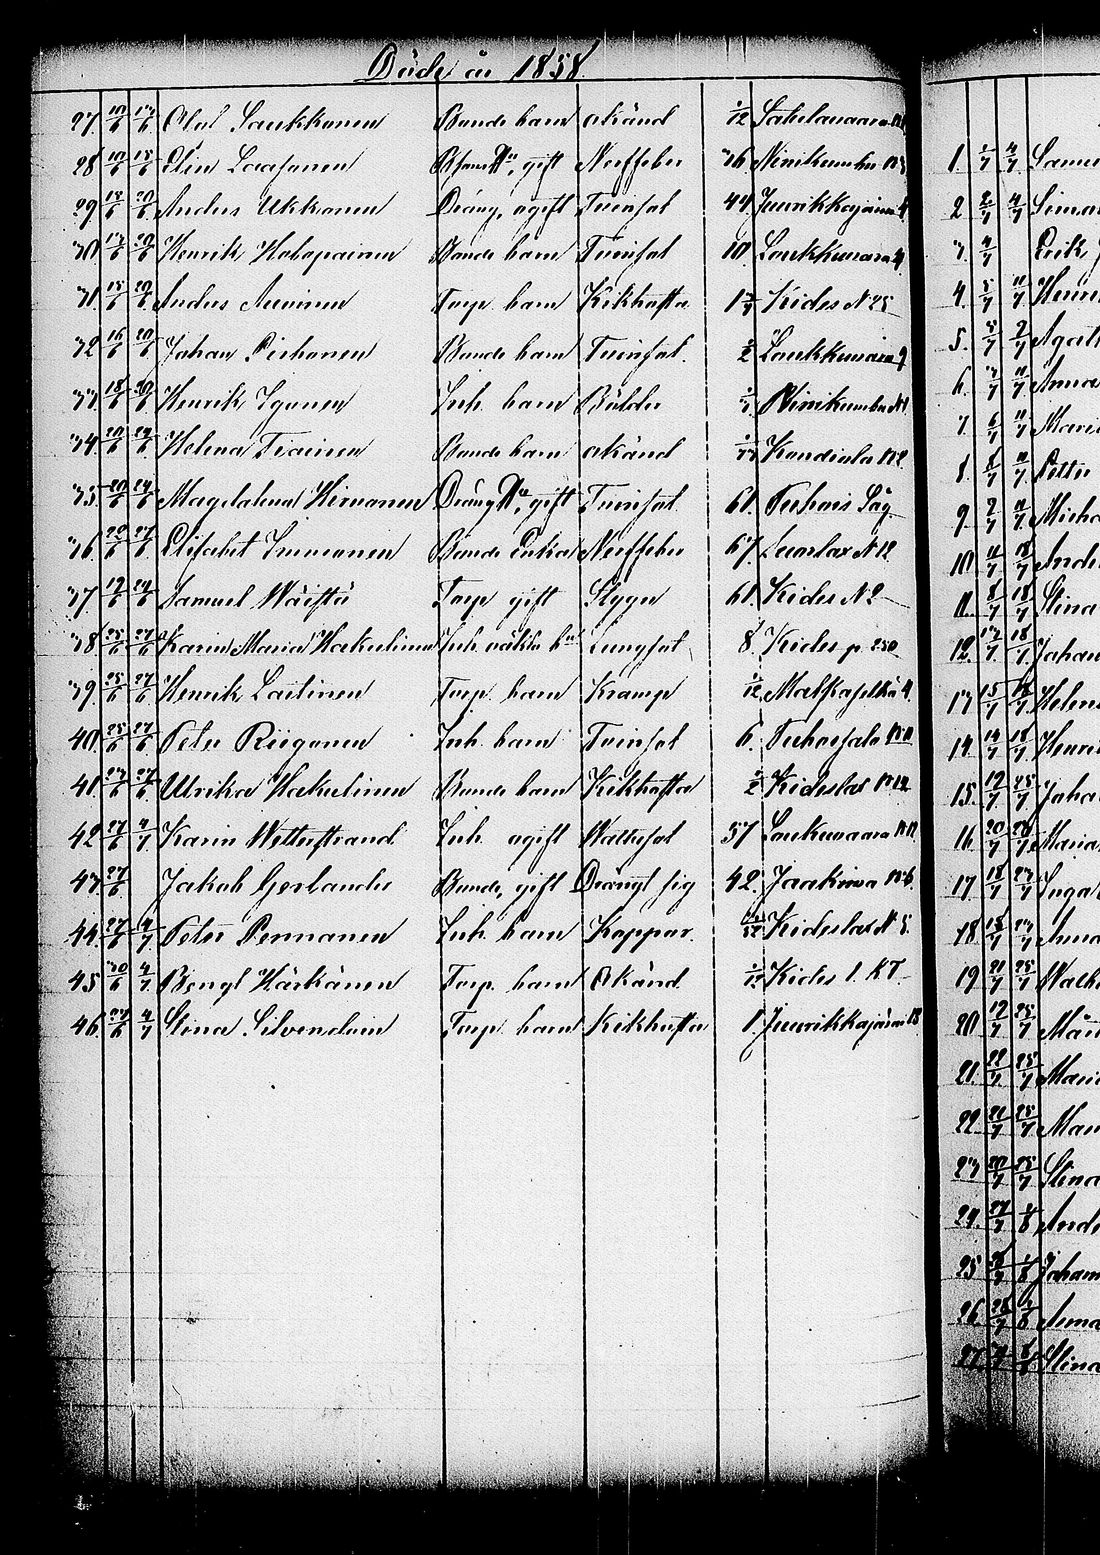 Döde år 1858.
27. 10/6 13/6 Olof Saukkonen Bonde barn okänd 1/12 Satulavaara
28 10/6 13/6 Elin Laasonen gift Nerffeber 36 Niinikumbu N 3
29 13/6 20/6 Anders Ukkonen Dräng, ogift Tvinsot 44 Juurikkajärvi 4
30. 13/6 20/6 Henrik Holopainen Bonde barn Tvinsot 10 Loukkuvaara 4
31. 15/6 20/6 Anders Auvinen Torp. barn Kikhosta 1 3/4 Kides N 25
32 16/6 20/6 Johan Pirhonen Bonde barn Tvinsot. 1/2 Loukkuvaara 9
33 18/6 20/6 Henrik Igonen Inh. barn Bölder Niinikumbu
34 20/6 24/6 Helena Tiainen Bonde barn okänd Kondiala N 2
35 20/6 24/6 Magdalena Hirvonen Dräng gift Tvinsot. 61. Puhois Såg
36. 22/6 27/6 Elisabet Immonen Bonde Enka Nerffeber 67. N 12
37. 19/6 24/6 Samuel Wäistö Torp gift Stygn 61. Kides N 2
38 25/6 27/6 Karin Maria Hakulinen Inh. Lungsot 8. Kides p. 250
39. 25/6 27/6 Henrik Laitinen Torp. barn Kramp 1/12 Matkaselkä 4
40. 25/6 27/6 Peter Riigonen Inh. barn Tvinsot 6. Puhossalo
41. 23/6 27/6 Ulrika Hakulinen Bonde barn Kikhosta 1/2 Kideslax N 12
42 27/6 4/7 Karin Wetterstrand Inh. ogift Wattusot 57 Loukuvaara
43. 27/6 Jakob Gerlander Bonde, gift Drängt sig 42. Jaakima N 6.
44. 27/6 4/7 Peter Pennanen Inh. barn Koppor. Kideslax N 5.
45 30/6 4/7 Bengt Härkänen Torp. barn Okänd 1/12 Kides l. KT
46. 29/6 4/7 Stina Silvendoin Torp. barn Kikhosta 1. Juurikkajärvi 18
1. 1/7 4/7
2 2/7 4/7 Simon
3. 4/7 Erik
4. 5/7 11/7 Henri
5. 5/7 Agat
6. 11/7 Anna
7. 6/7 11/7 Mari
8. 11/7 Petter
9 11/7 Micha
10. 11/7 18/7 Ande
11. 8/7 18/7 Stina
12. 13/7 18/7 Johan
13 15/7 18/7 Helen
14. 14/7 18/7 Henri
15. 19/7 25/7 Joha
16. 20/7 Maria
17. 18/7 Inga
18 Anna
19. 21/7 25/7
20. 19/7 25/7
21. 22/7 25/7 Mari
22. 21/7 25/7
23 20/7 25/7 Stina
24. 27/7 1/8 Ande
25 1/8 Johan
26. 28/7 Anna
27. Stina